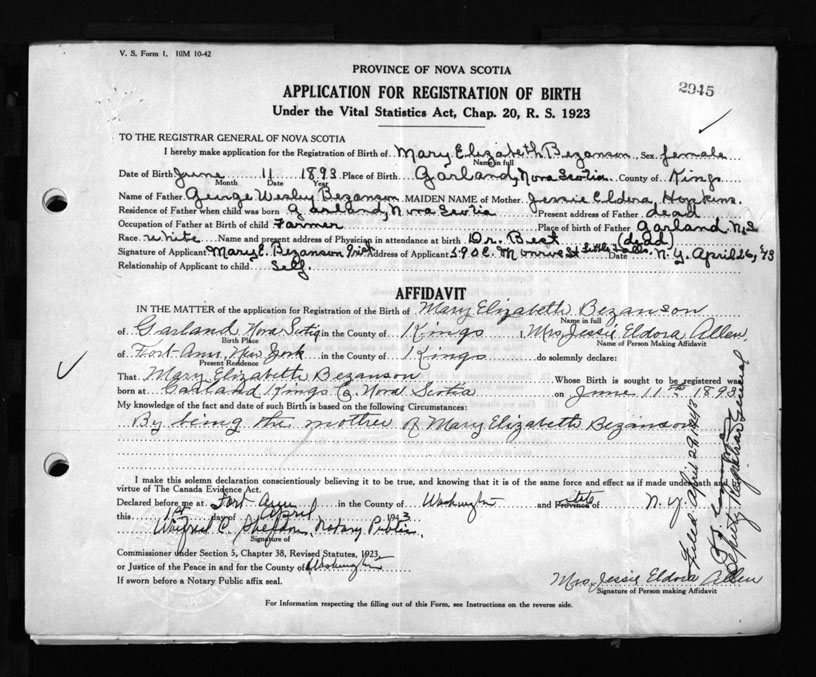 V. S. Form 1. 10M 10-42
PROVINCE OF NOVA SCOTIA
2945
APPLICATION FOR REGISTRATION OF BIRTH
Under the Vital Statistics Act, Chap. 20, R. S. 1923
TO THE REGISTRAR GENERAL OF NOVA SCOTIA
I hereby make application for the Registration of Birth of Mary Elizabeth Bezanson Sex female
Name in full
Date of Birth June 11 1893 Place of Birth Garland, Nova Scotia County of Kings
Month Date Year
Name of Father George Wesley Bezanson MAIDEN NAME of Mother Jessie Eldora Hopkins
Residence of Father when child was born Garland, Nova Scotia Present address of Father dead
Occupation of Father at Birth of child Farmer Place of birth of Father Garland N.S
Race white Name and present address of Physician in attendance at birth Dr. Best (dead)
Signature of Applicant Mary E. Bezanson Address of Applicant 590 E. Monroe St Little Falls N.Y. Date April 26, 43
Relationship of Applicant to child Self.
AFFIDAVIT
IN THE MATTER of the application for Registration of the Birth of Mary Elizabeth Bezanson
Name in full
of Garland Nova Scotia in the County of Kings Mrs. Jessie Eldora Allen,
Birth Place Name of Person Making Affidavit
of Fort-Ann, New York in the County of Kings do solemnly declare:
Present Residence
That Mary Elizabeth Bezanson Whose Birth is sought to be registered was
born at Garland Kings Co. Nova Scotia on June 11th 1893
My knowledge of the fact and date of such Birth is based on the following Circumstances:
By being the mother of Mary Elizabeth Bezanson
I make this solemn declaration conscientiously believing it to be true, and knowing that it is of the same force and effect as if made under oath and
virtue of The Canada Evidence Act.
Declared before me at Fort Ann in the County of Washington and Province of state N.Y.
this 1st day of April 1943
C. Sheldon, Notary Public,
Signature of
Commissioner under Section 5, Chapter 38, Revised Statutes, 1923
or Justice of the Peace in and for the County of Washington
If sworn before a Notary Public affix seal.
Mrs. Jessie Eldora Allen
Signature of Person making Affidavit
For Information respecting the filling out of this Form, see Instructions on the reverse side.
Filed April 29 1943
Deputy Registrar General